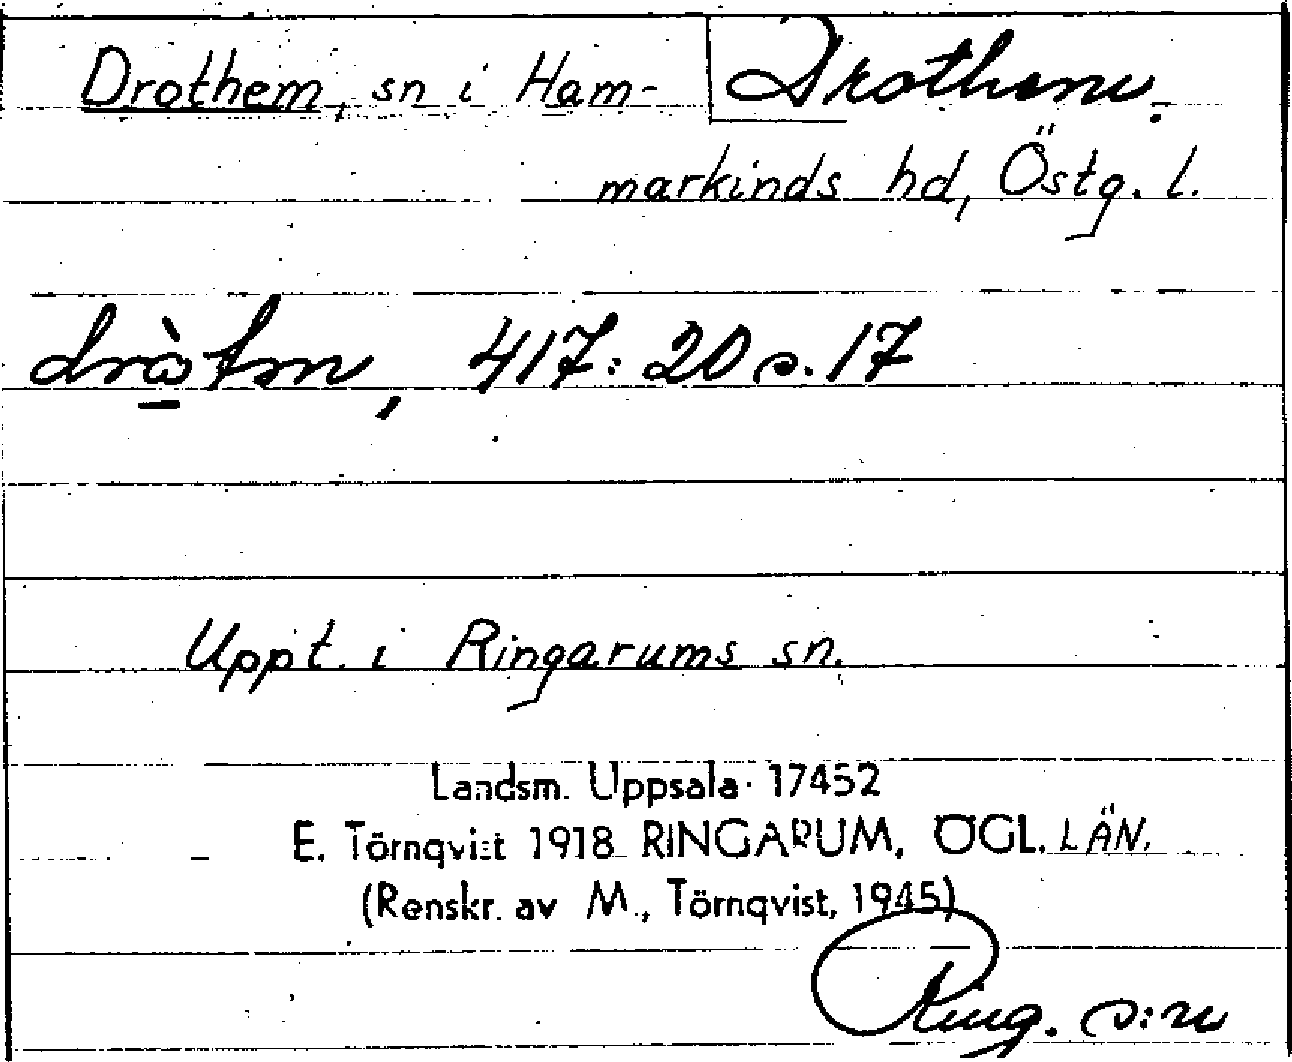 Drothem, sn i Ham-
Drothem.
markinds hd, Östg. l.
417: 20 s. 17
Uppt. i Ringarums sn.
Landsm. Uppsala 17452
E. Törnqvist 1918 RINGARUM, ÖGL. LÄN.
(Renskr. av M., Törnqvist, 1945)
Ring. s:n